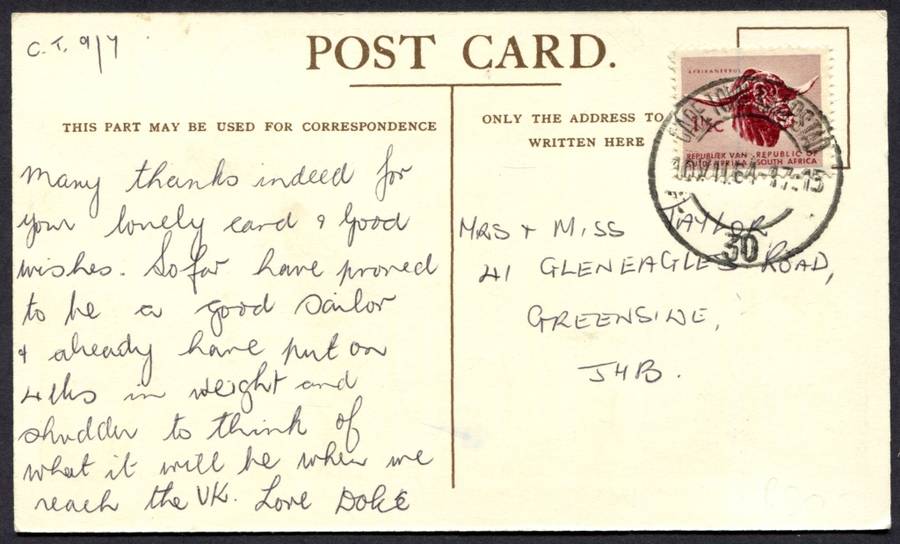 C.T. 9/7
POST CARD.
THIS PART MAY BE USED FOR CORRESPONDENCE
Many thanks indeed for
your lovely card & good
wishes. So far have proved
to be a good sailor
& already have put on
4 lbs in weight and
shudder to think of
what it will be when we
reach the UK. Love
ONLY THE ADDRESS TO
WRITTEN HERE
AFRIKANERBUL
½c
REPUBLIEK VAN REPUBLIC OF
SOUTH AFRICA
64-17:15
30
MRS & MISS TAYLOR
41 GLENEAGLES ROAD,
GREENSIDE,
JHB.